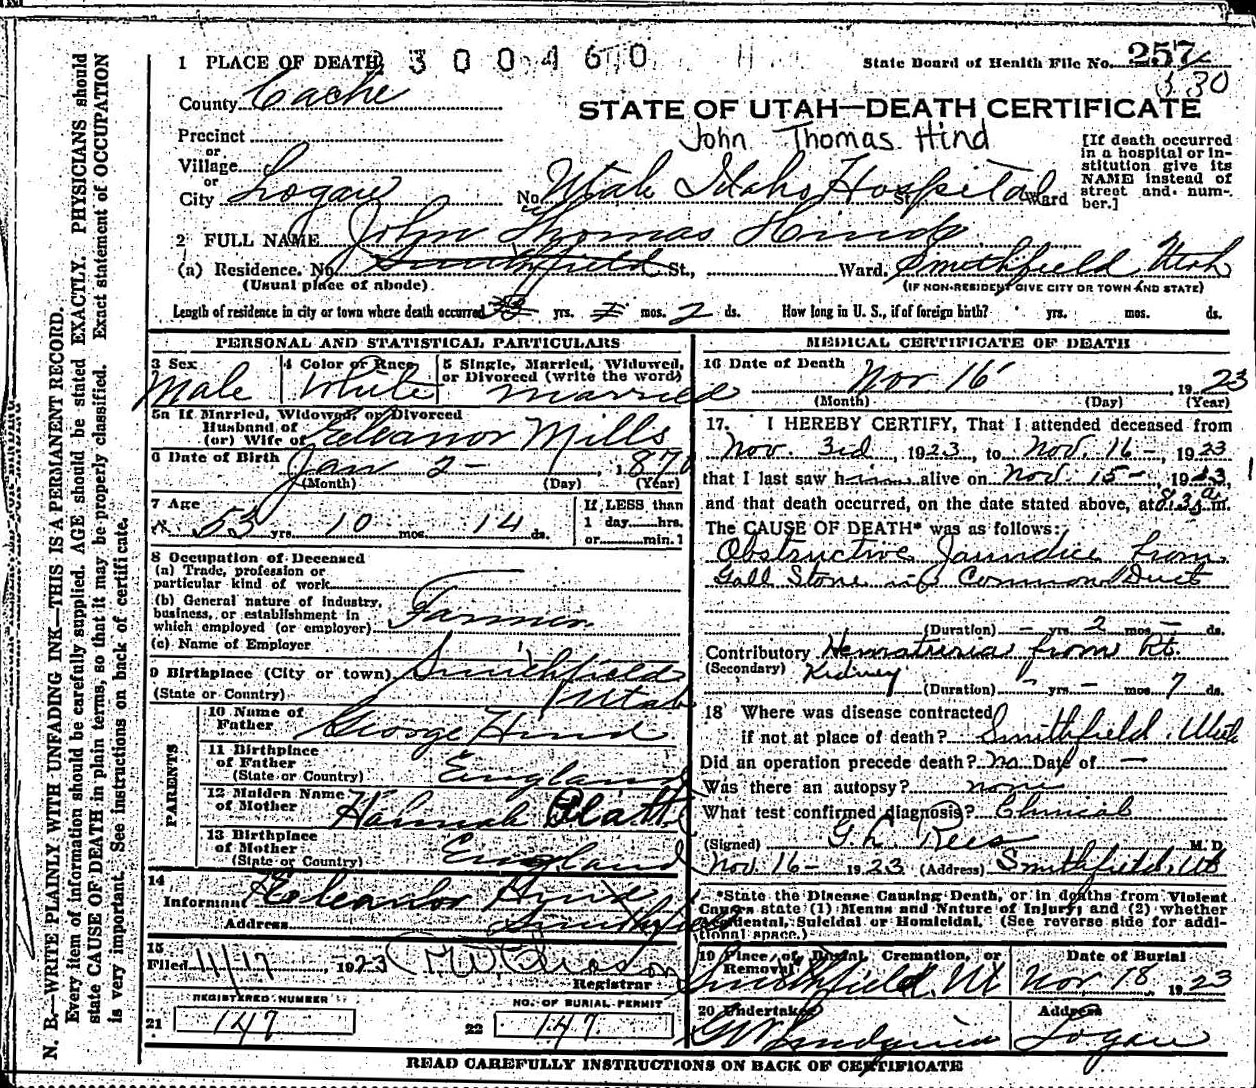 1 PLACE OF DEATH 2300460 11
State Board of Health File No. 257
330
County Cache
STATE OF UTAH—DEATH CERTIFICATE
John Thomas Hind
Precinct
or
Village
or
City Logan
No. Utah Idaho Hospital St. Ward
[If death occurred
in a hospital or in-
stitution give its
NAME instead of
street and num-
ber.]
2 FULL NAME John Thomas Hind
(a) Residence. No. Smithfield St., Ward. Smithfield Utah
(Usual place of abode). (IF NON-RESIDENT GIVE CITY OR TOWN AND STATE)
Length of residence in city or town where death occurred yrs. mos. 2 ds. How long in U. S., if of foreign birth? yrs. mos. ds.
PERSONAL AND STATISTICAL PARTICULARS
3 Sex 4 Color or Race 5 Single, Married, Widowed,
or Divorced (write the word)
Male White Married
5a If Married, Widowed, or Divorced
Husband of
(or) Wife of Eleanor Mills
6 Date of Birth Jan 2- , 1870
(Month) (Day) (Year)
7 Age
53 yrs. 10 mos. 14 ds.
If LESS than
1 day hrs.
or min.]
8 Occupation of Deceased
(a) Trade, profession or
particular kind of work
(b) General nature of industry,
business, or establishment in
which employed (or employer) Farmer
(c) Name of Employer
9 Birthplace (City or town) Smithfield
(State or Country) Utah
PARENTS
10 Name of
Father George Hind
11 Birthplace
of Father
(State or Country) England
12 Maiden Name
of Mother Hannah Platt
13 Birthplace
of Mother
(State or Country) England
14
Informant Eleanor Hind
Address Smithfield
15
Filed 11/17, 1923
Registrar
REGISTERED NUMBER NO. OF BURIAL PERMIT
21 147 22 147
MEDICAL CERTIFICATE OF DEATH
16 Date of Death Nov 16 1923
(Month) (Day) (Year)
17. I HEREBY CERTIFY, That I attended deceased from
Nov. 3rd, 1923, to Nov. 16-, 1923
that I last saw him alive on Nov. 15-, 1923,
and that death occurred, on the date stated above, at 8:35 a m.
The CAUSE OF DEATH* was as follows:
Obstructive Jaundice from
Gall Stone in Common Duct
(Duration) - yrs. 2 mos. - ds.
Contributory Hematuria from Rt.
(Secondary) Kidney
(Duration) - yrs. - mos. 7 ds.
18 Where was disease contracted
if not at place of death? Smithfield, Utah
Did an operation precede death? no Date of —
Was there an autopsy? none
What test confirmed diagnosis? Clinical
(Signed) G. L. Rees M. D.
Nov. 16- 1923 (Address) Smithfield, Ut
*State the Disease Causing Death, or in deaths from Violent
Causes state (1) Means and Nature of Injury; and (2) whether
Accidental, Suicidal or Homicidal. (See reverse side for addi-
tional space.)
19 Place of Burial, Cremation, or
Removal Smithfield, Ut
Date of Burial
Nov 18 1923
20 Undertaker
Address
Logan
READ CAREFULLY INSTRUCTIONS ON BACK OF CERTIFICATE
N. B.—WRITE PLAINLY WITH UNFADING INK—THIS IS A PERMANENT RECORD.
Every item of information should be carefully supplied. AGE should be stated EXACTLY. PHYSICIANS should
state CAUSE OF DEATH in plain terms, so that it may be properly classified. Exact statement of OCCUPATION
is very important. See instructions on back of certificate.